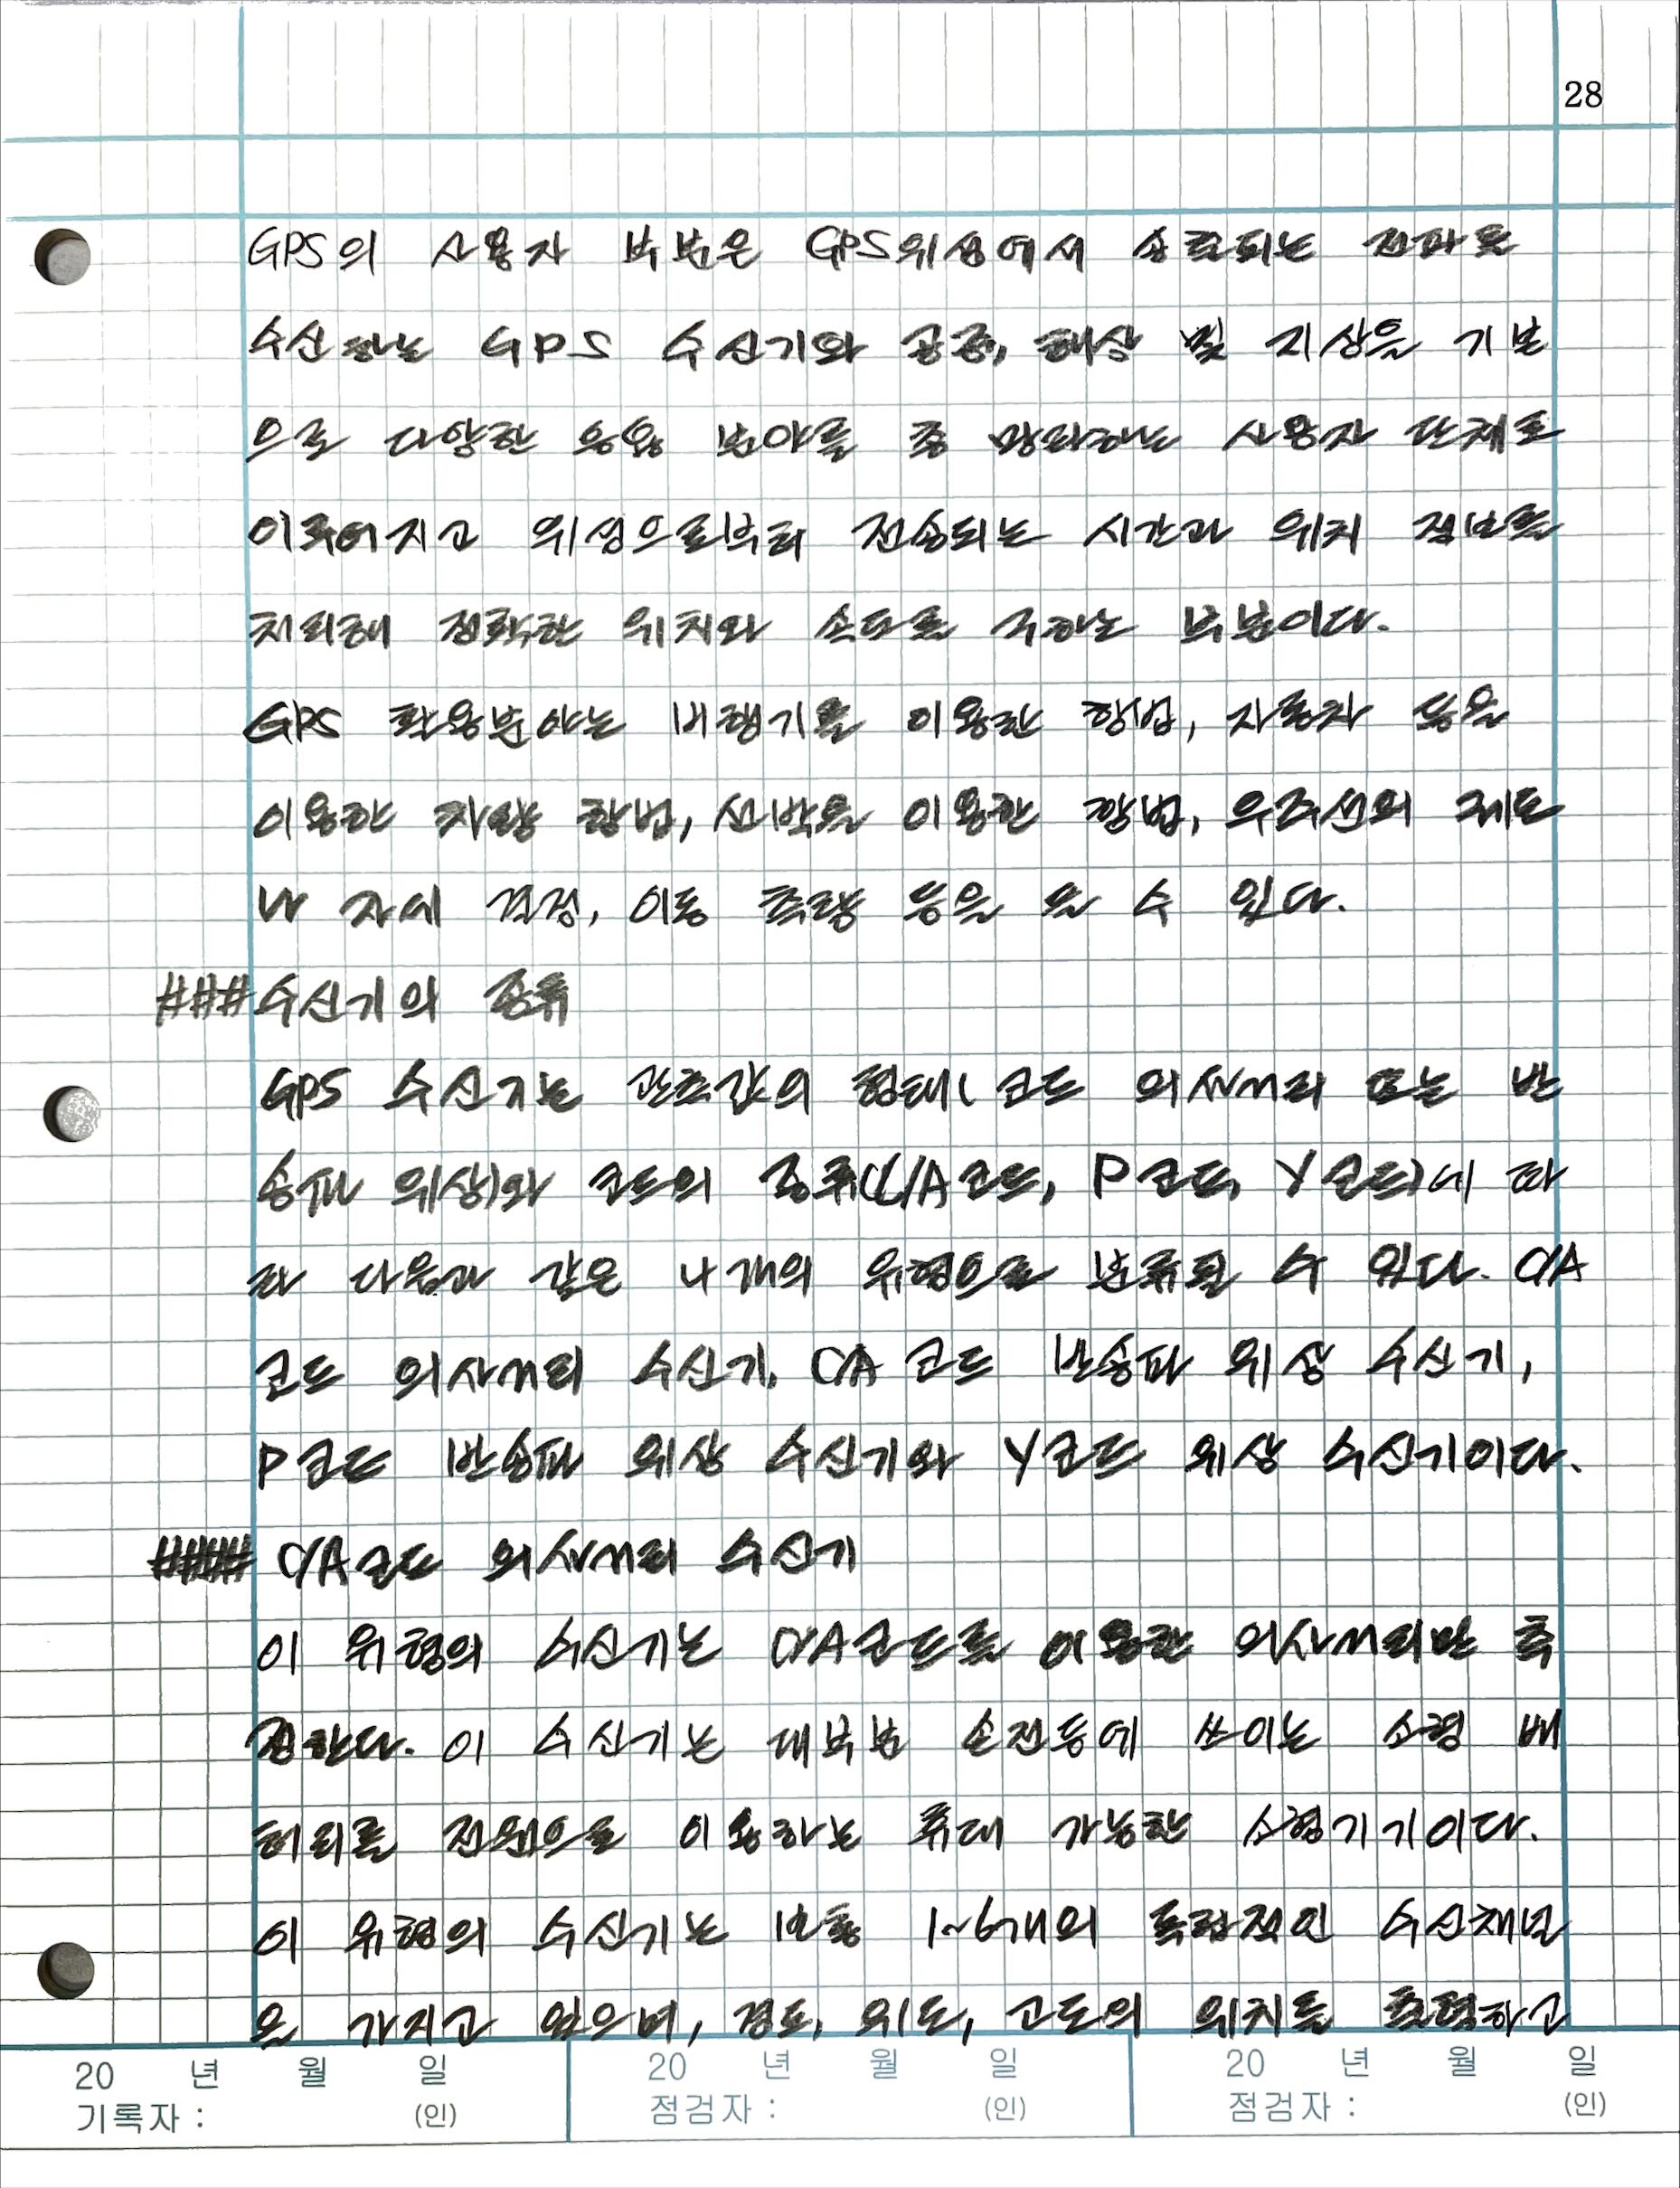 28
GPS의 사용자 부분은 GPS위성에서 송출되는 전파를
수신하는 GPS 수신기와 공중, 해상 및 지상을 기본
으로 다양한 응용 분야를 총 망라하는 사용자 단체로
이루어지고 위성으로부터 전송되는 시간과 위치 정보를
처리해 정확한 위치와 속도를 구하는 부분이다.
GPS 활용분야는 비행기를 이용한 항법, 자동차 등을
이용한 차량 항법, 선박을 이용한 항법, 우주선의 궤도
나 자세 결정, 이동 측량 등을 들 수 있다.
### 수신기의 종류
GPS 수신기는 관측값의 형태(코드 의사거리 또는 반
송파 위상)와 코드의 종류(C/A코드, P코드, Y코드)에 따
라 다음과 같은 4개의 유형으로 분류될 수 있다. C/A
코드 의사거리 수신기, C/A 코드 반송파 위상 수신기,
P코드 반송파 위상 수신기와 Y코드 위상 수신기이다.
#### C/A코드 의사거리 수신기
이 유형의 수신기는 C/A코드를 이용한 의사거리만 측
정한다. 이 수신기는 대부분 손전등에 쓰이는 소형 배
터리를 전원으로 이용하는 휴대 가능한 소형기기이다.
이 유형의 수신기는 보통 1~6개의 독립적인 수신채널
을 가지고 있으며, 경도, 위도, 고도의 위치를 출력하고
20 년 월 일
기록자 : (인)
20 년 월 일
점검자 : (인)
20 년 월 일
점검자 : (인)